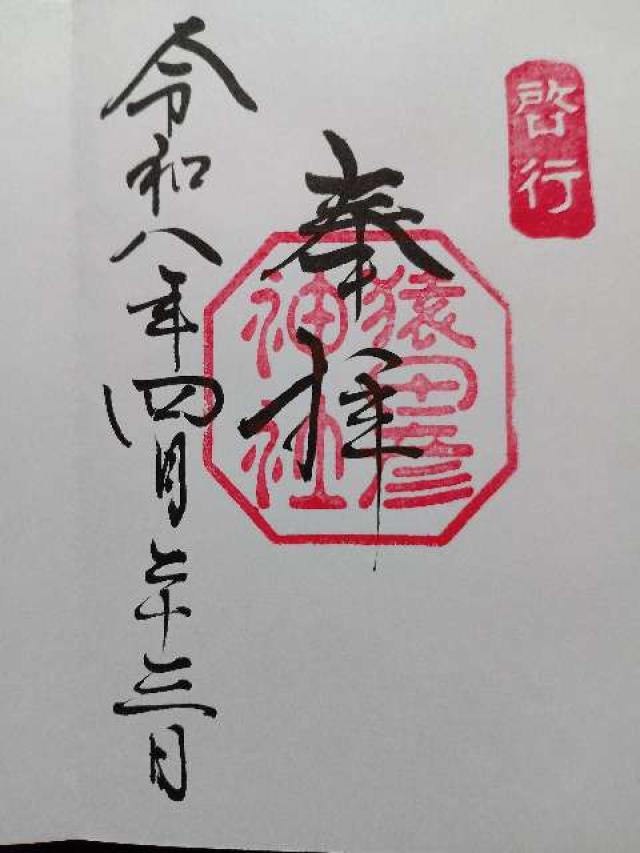 啓行
奉拝
猿田彦
神社
令和八年四月二十三日